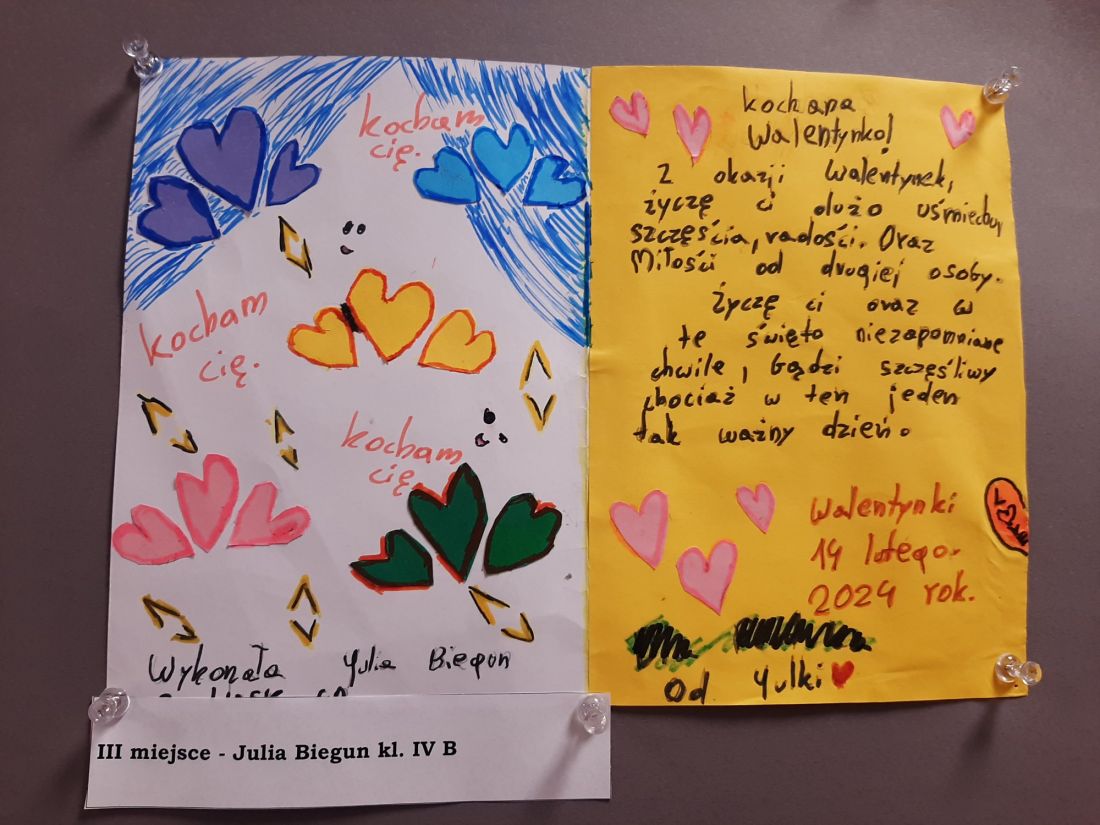 kocham
cię.
kocham
cię.
kocham
cię.
Wykonała Yulia Biegun
III miejsce - Julia Biegun kl. IV B
kochana
Walentynko!
Z okazji Walentynek,
życzę ci dużo uśmiechu,
szczęścia, radości. Oraz
Miłości od drugiej osoby.
Życzę ci oraz w
te święto niezapomniane
chwile, bądzi szczęśliwy
chociaż w ten jeden
tak ważny dzień.
Walentynki
14 lutego.
2024 rok.
Od Yulki